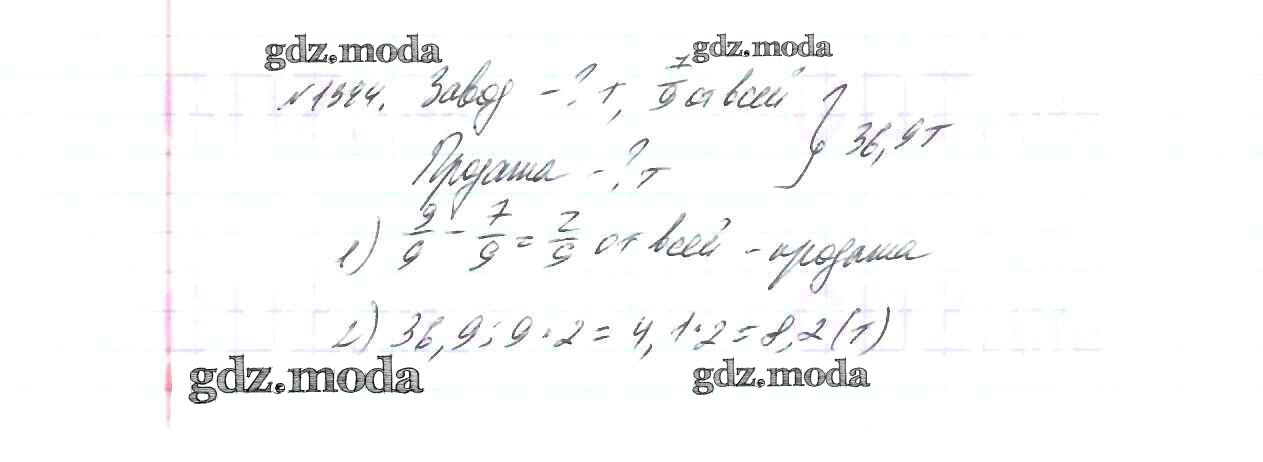 gdz.moda gdz.moda
№1344. Завод - ? т, 7/9 от всей } 36,9 т
Продажа - ? т
1) 9/9 - 7/9 = 2/9 от всей - продажа
2) 36,9 : 9 · 2 = 4,1 · 2 = 8,2 (т)
gdz.moda gdz.moda